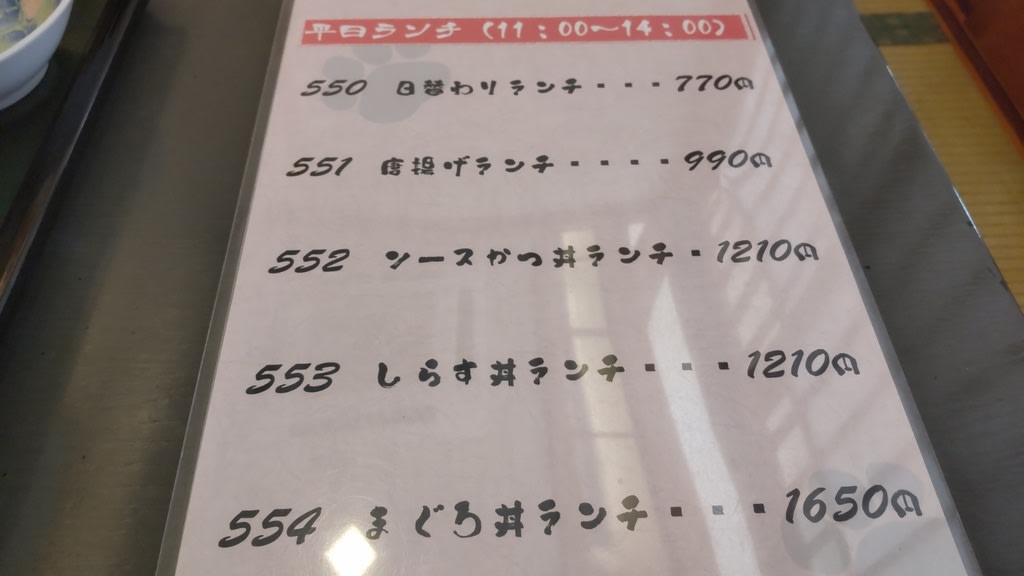 平日ランチ（11：00～14：00）
550 日替わりランチ・・・770円
551 唐揚げランチ・・・・990円
552 ソースかつ丼ランチ・1210円
553 しらす丼ランチ・・・1210円
554 まぐろ丼ランチ・・・1650円